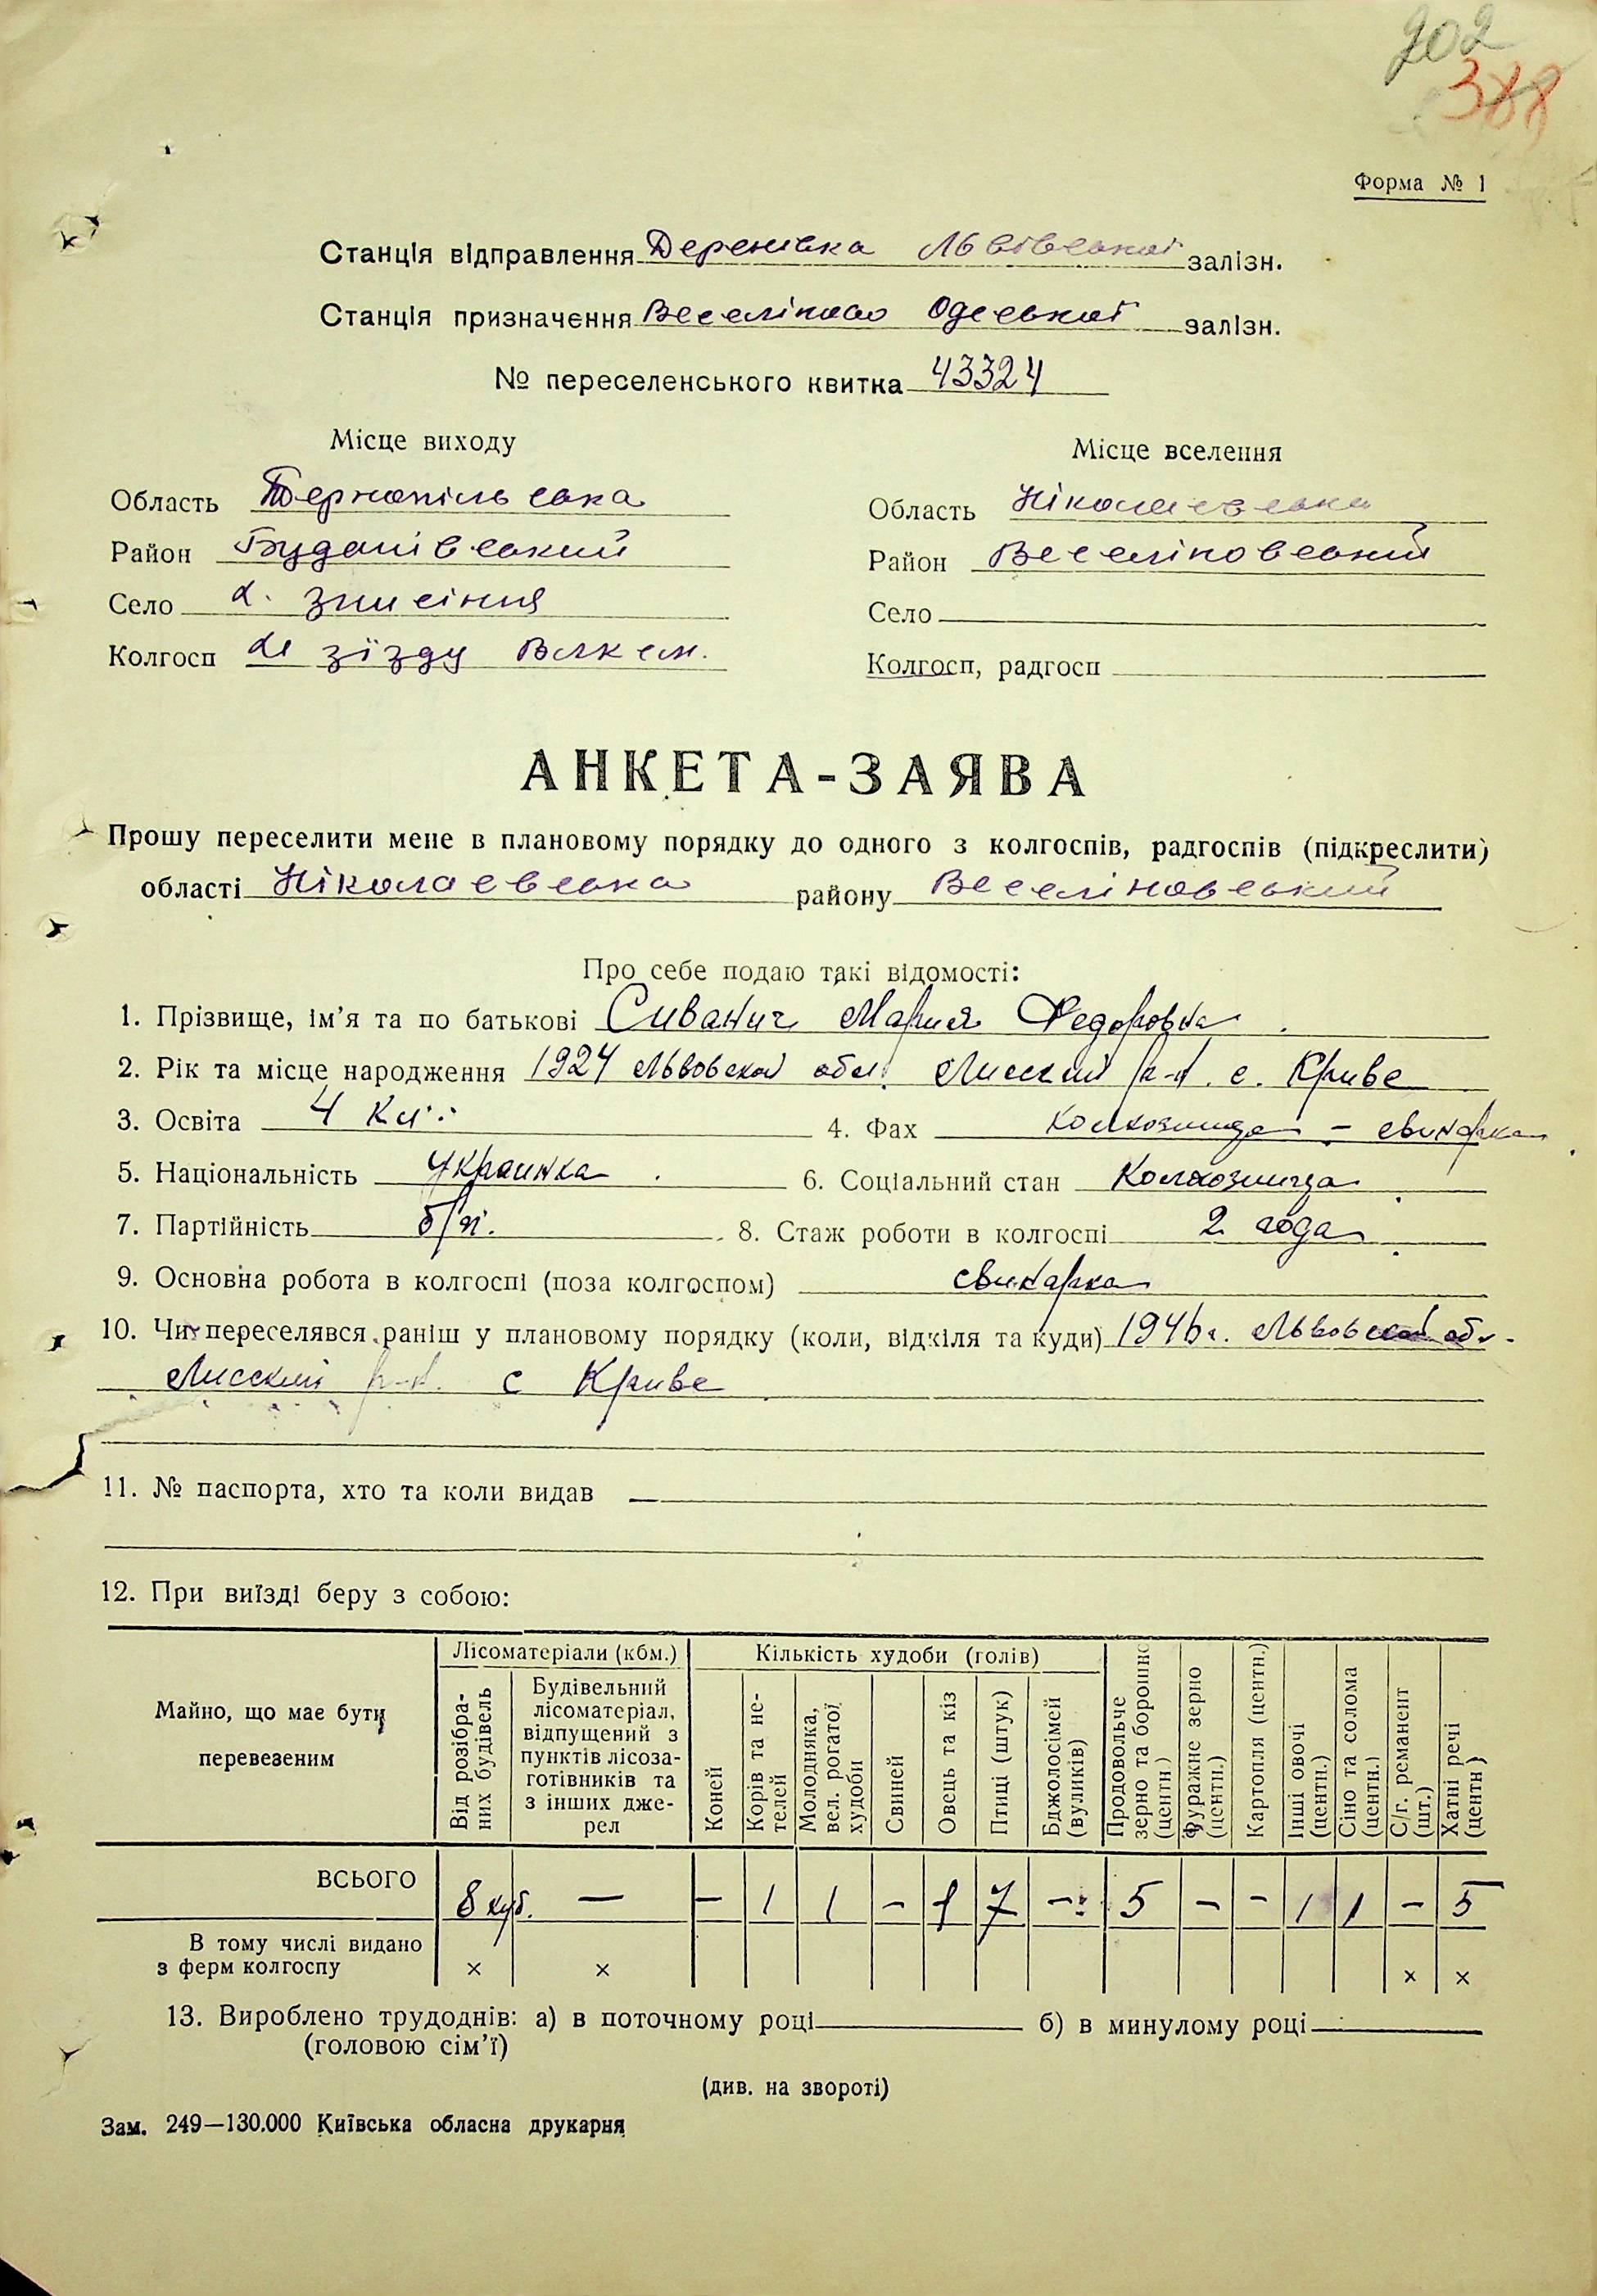 202
388
Форма № 1
Станція відправлення Деренівка Львівської залізн.
Станція призначення Веселіново Одеської залізн.
№ переселенського квитка 43324
Місце виходу
Місце вселення
Область Тернопільська
Область Ніколаевська
Район Буданівський
Район Веселіновський
Село с. Знисіння
Село
Колгосп зїзду
Колгосп, радгосп
АНКЕТА-ЗАЯВА
Прошу переселити мене в плановому порядку до одного з колгоспів, радгоспів (підкреслити)
області Ніколаевська району Веселіновський
Про себе подаю такі відомості:
1. Прізвище, ім’я та по батькові Сиванич Мария Федоровна
2. Рік та місце народження 1924 Львовской обл. Лисский р-н. с. Криве
3. Освіта 4 кл. 4. Фах колхозница - свинарка
5. Національність украинка 6. Соціальний стан Колхозница
7. Партійність б/п. 8. Стаж роботи в колгоспі 2 года
9. Основна робота в колгоспі (поза колгоспом) свинарка
10. Чи переселявся раніш у плановому порядку (коли, відкіля та куди) 1946 г. Львовской обл.
Лисский р-н. с Криве
11. № паспорта, хто та коли видав —
12. При виїзді беру з собою:
Майно, що має бути перевезеним
Лісоматеріали (кбм.)
Від розібраних будівель
Будівельний лісоматеріал, відпущений з пунктів лісозаготівників та з інших джерел
Кількість худоби (голів)
Коней
Корів та нетелей
Молодняка, вел. рогатої худоби
Свиней
Овець та кіз
Птиці (штук)
Бджолосімей (вуликів)
Продовольче зерно та борошно (центн.)
Фуражне зерно (центн.)
Картопля (центн.)
Інші овочі (центн.)
Сіно та солома (центн.)
С/г. реманент (шт.)
Хатні речі (центн.)
ВСЬОГО 8 куб. — — 1 1 - 1 7 — 5 - - 1 1 - 5
В тому числі видано
з ферм колгоспу × × × ×
13. Вироблено трудоднів: а) в поточному році б) в минулому році
(головою сім’ї)
(див. на звороті)
Зам. 249—130.000 Київська обласна друкарня